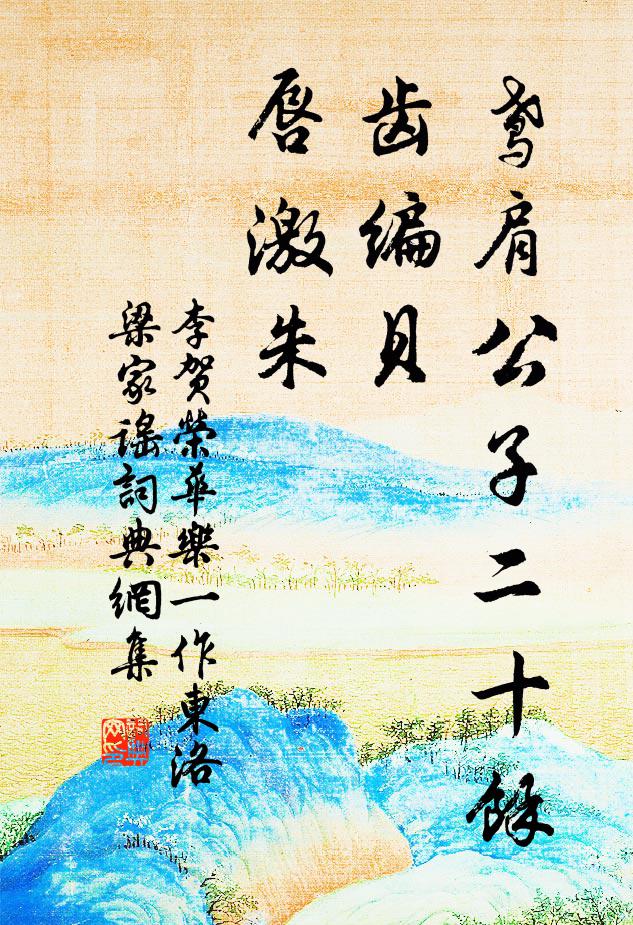 鸢肩公子二十馀
齿编贝
唇激朱
李贺荣华樂一作東洛
梁家谣詞典網集